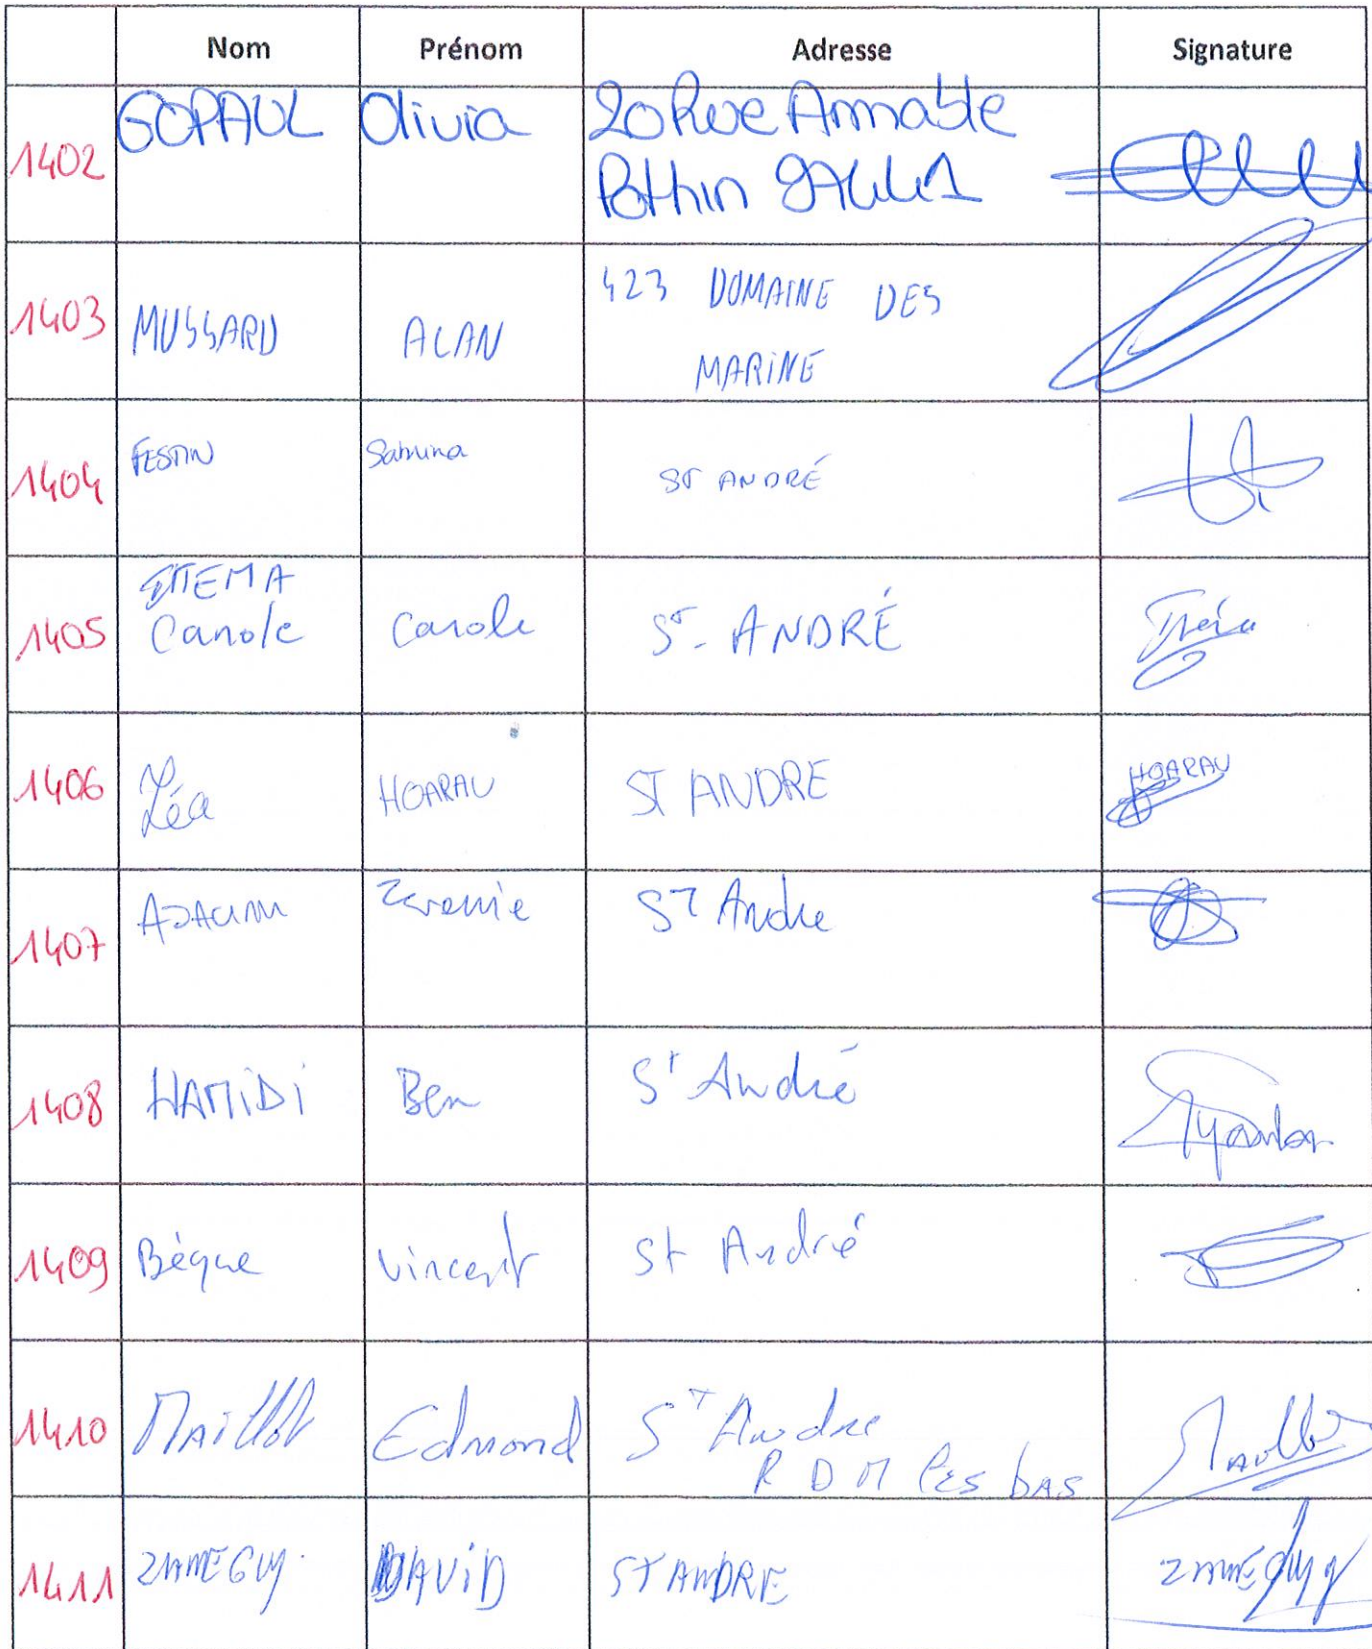 Nom Prénom Adresse Signature
1402 GOPAUL Olivia 20 Rue Annable
Pothin
1403 MUSSARD ALAN 423 DOMAINE DES
MARINE
1404 FESTIN Sabrina ST ANDRÉ
1405 ITTEMA
Carole Carole ST - ANDRÉ
1406 Léa HOARAU ST ANDRE HOARAU
1407 ST Andre
1408 HAMIDI Ben St André
1409 Bègue Vincent St André
1410 Maillot Edmond ST Andre
R D M les bas
1411 DAVID ST ANDRE